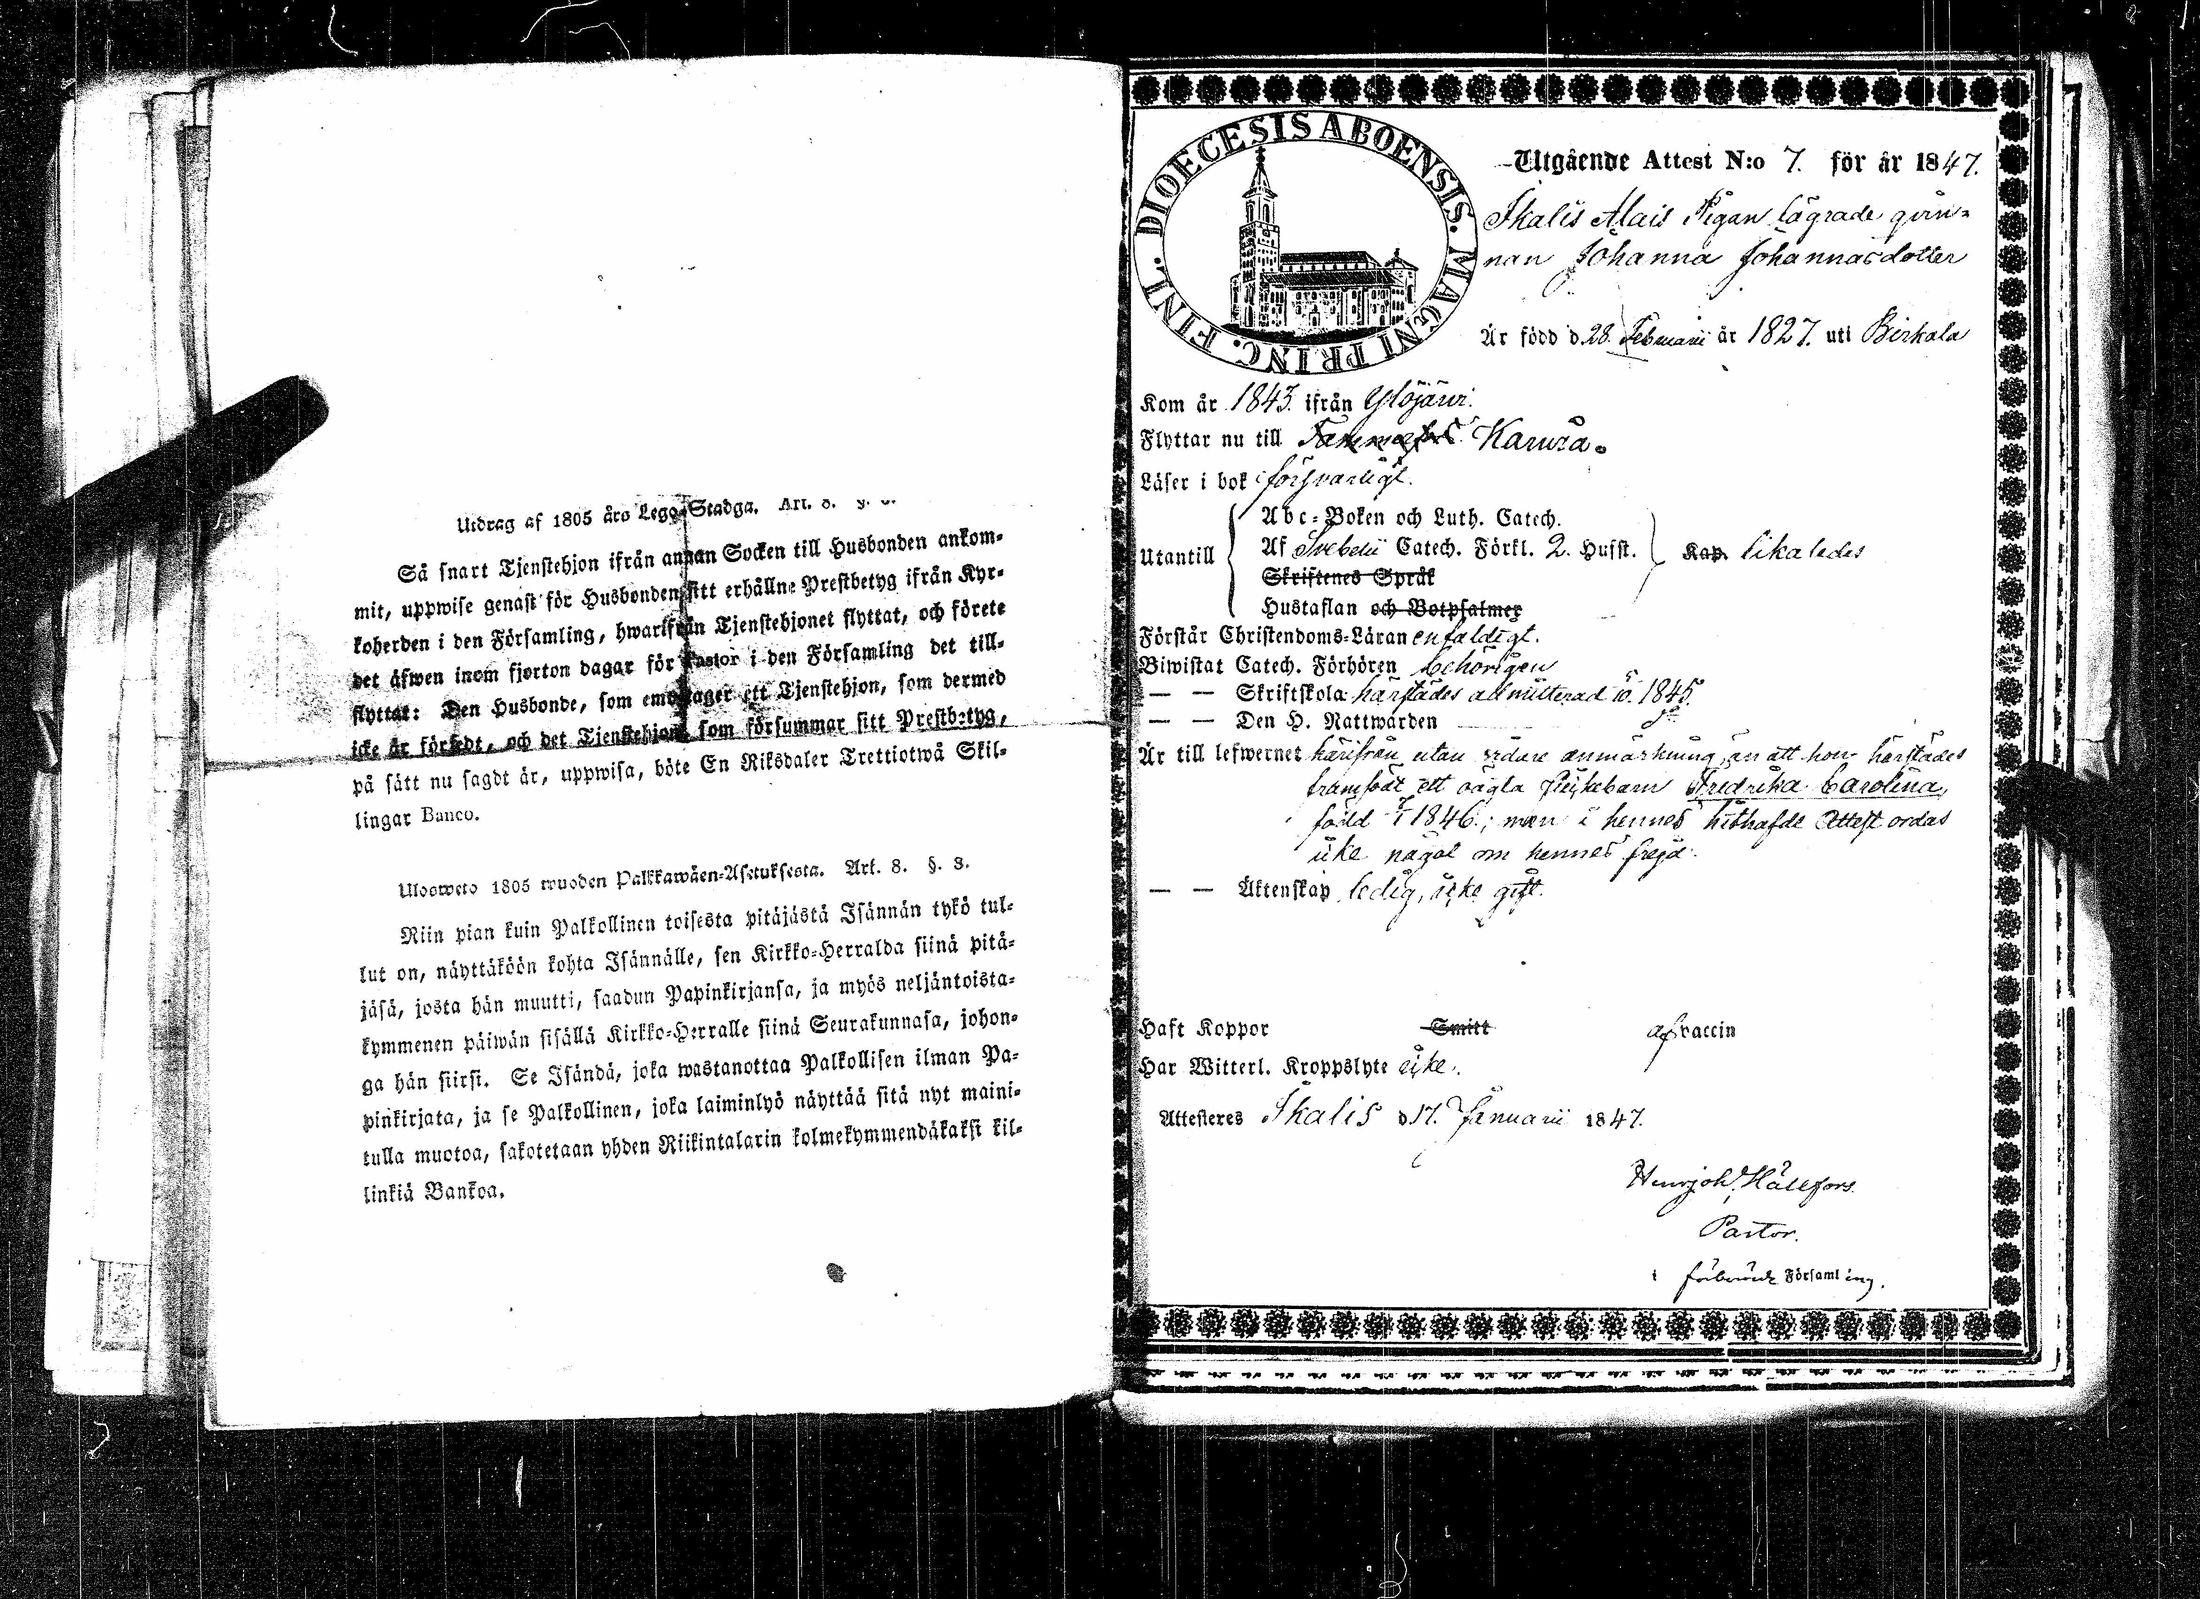 Utdrag af 1805 års Lego-Stadga. Art. 8.
Så snart Tjenstehjon ifrån annan Socken till Husbonden ankom-
mit, uppwise genast för Husbonden sitt erhållne Prestbetyg ifrån Kyr-
koherden i den Församling, hwarifrån Tjenstehjonet flyttat, och förete
det äfwen inom fjorton dagar för Pastor i den Församling det till-
flyttat: Den Husbonde, som emottager ett Tjenstehjon, som dermed
icke är försedt, och det Tjenstehjon, som försummar sitt Prestbetyg,
på sätt nu sagdt är, uppwisa, böte En Riksdaler Trettiotwå Skil-
lingar Banco.
Ulosweto 1805 wuoden Palkkawäen-Asetuksesta. Art. 8. §. 8.
Niin pian kuin Palkollinen toisesta pitäjästä Isännän tykö tul-
lut on, näyttäköön kohta Isännälle, sen Kirkko-Herralda siinä pitä-
jäsä, josta hän muutti, saadun Papinkirjansa, ja myös neljäntoista-
kymmenen päiwän sisällä Kirkko-Herralle siinä Seurakunnasa, johon-
ga hän siirsi. Se Isändä, joka wastanottaa Palkollisen ilman Pa-
pinkirjata, ja se Palkollinen, joka laiminlyö näyttää sitä nyt maini-
tulla muotoa, sakotetaan yhden Riikintalarin kolmekymmendäkaksi kil-
linkiä Bankoa.
DIOECESIS ABOENSIS. MAGNI PRINC. FINL.
Utgående Attest N:o 7. för år 1847.
Skalis Alais Pigan lägrade qvin-
nan Johanna Johannasdotter
Är född d 28. Februarii år 1827. uti Birkala
Kom år 1843. ifrån Ylöjärvi.
Flyttar nu till Tammerfors Karvia.
Läser i bok försvarligt.
Abc-Boken och Luth. Catech.
Utantill Af Svebelii Catech. Förkl. 2. Husst. Kap. likaledes
Skriftenes Språk
Hustaflan och Botpsalmer
Förstår Christendoms-Läran enfaldigt.
Biwistat Catech. Förhören behörigen
— — Skriftskola härstädes admitterad 1845.
— — Den H. Nattwarden
Är till lefwernet härifrån utan vidare anmärkning, än att hon härstädes
framfödt ett oägta flickebarn Fredrika Carolina,
född 1846.; men i hennes hithafde Attest ordas
icke något om hennes frejd.
— — Äktenskap ledig, icke gift.
Haft Koppor Smitt af Vaccin
Har Witterl. Kroppslyte icke.
Attesteres Skalis d 17. Januarii 1847.
Henr joh. Hällfors.
Pastor.
i förberörde Församling.